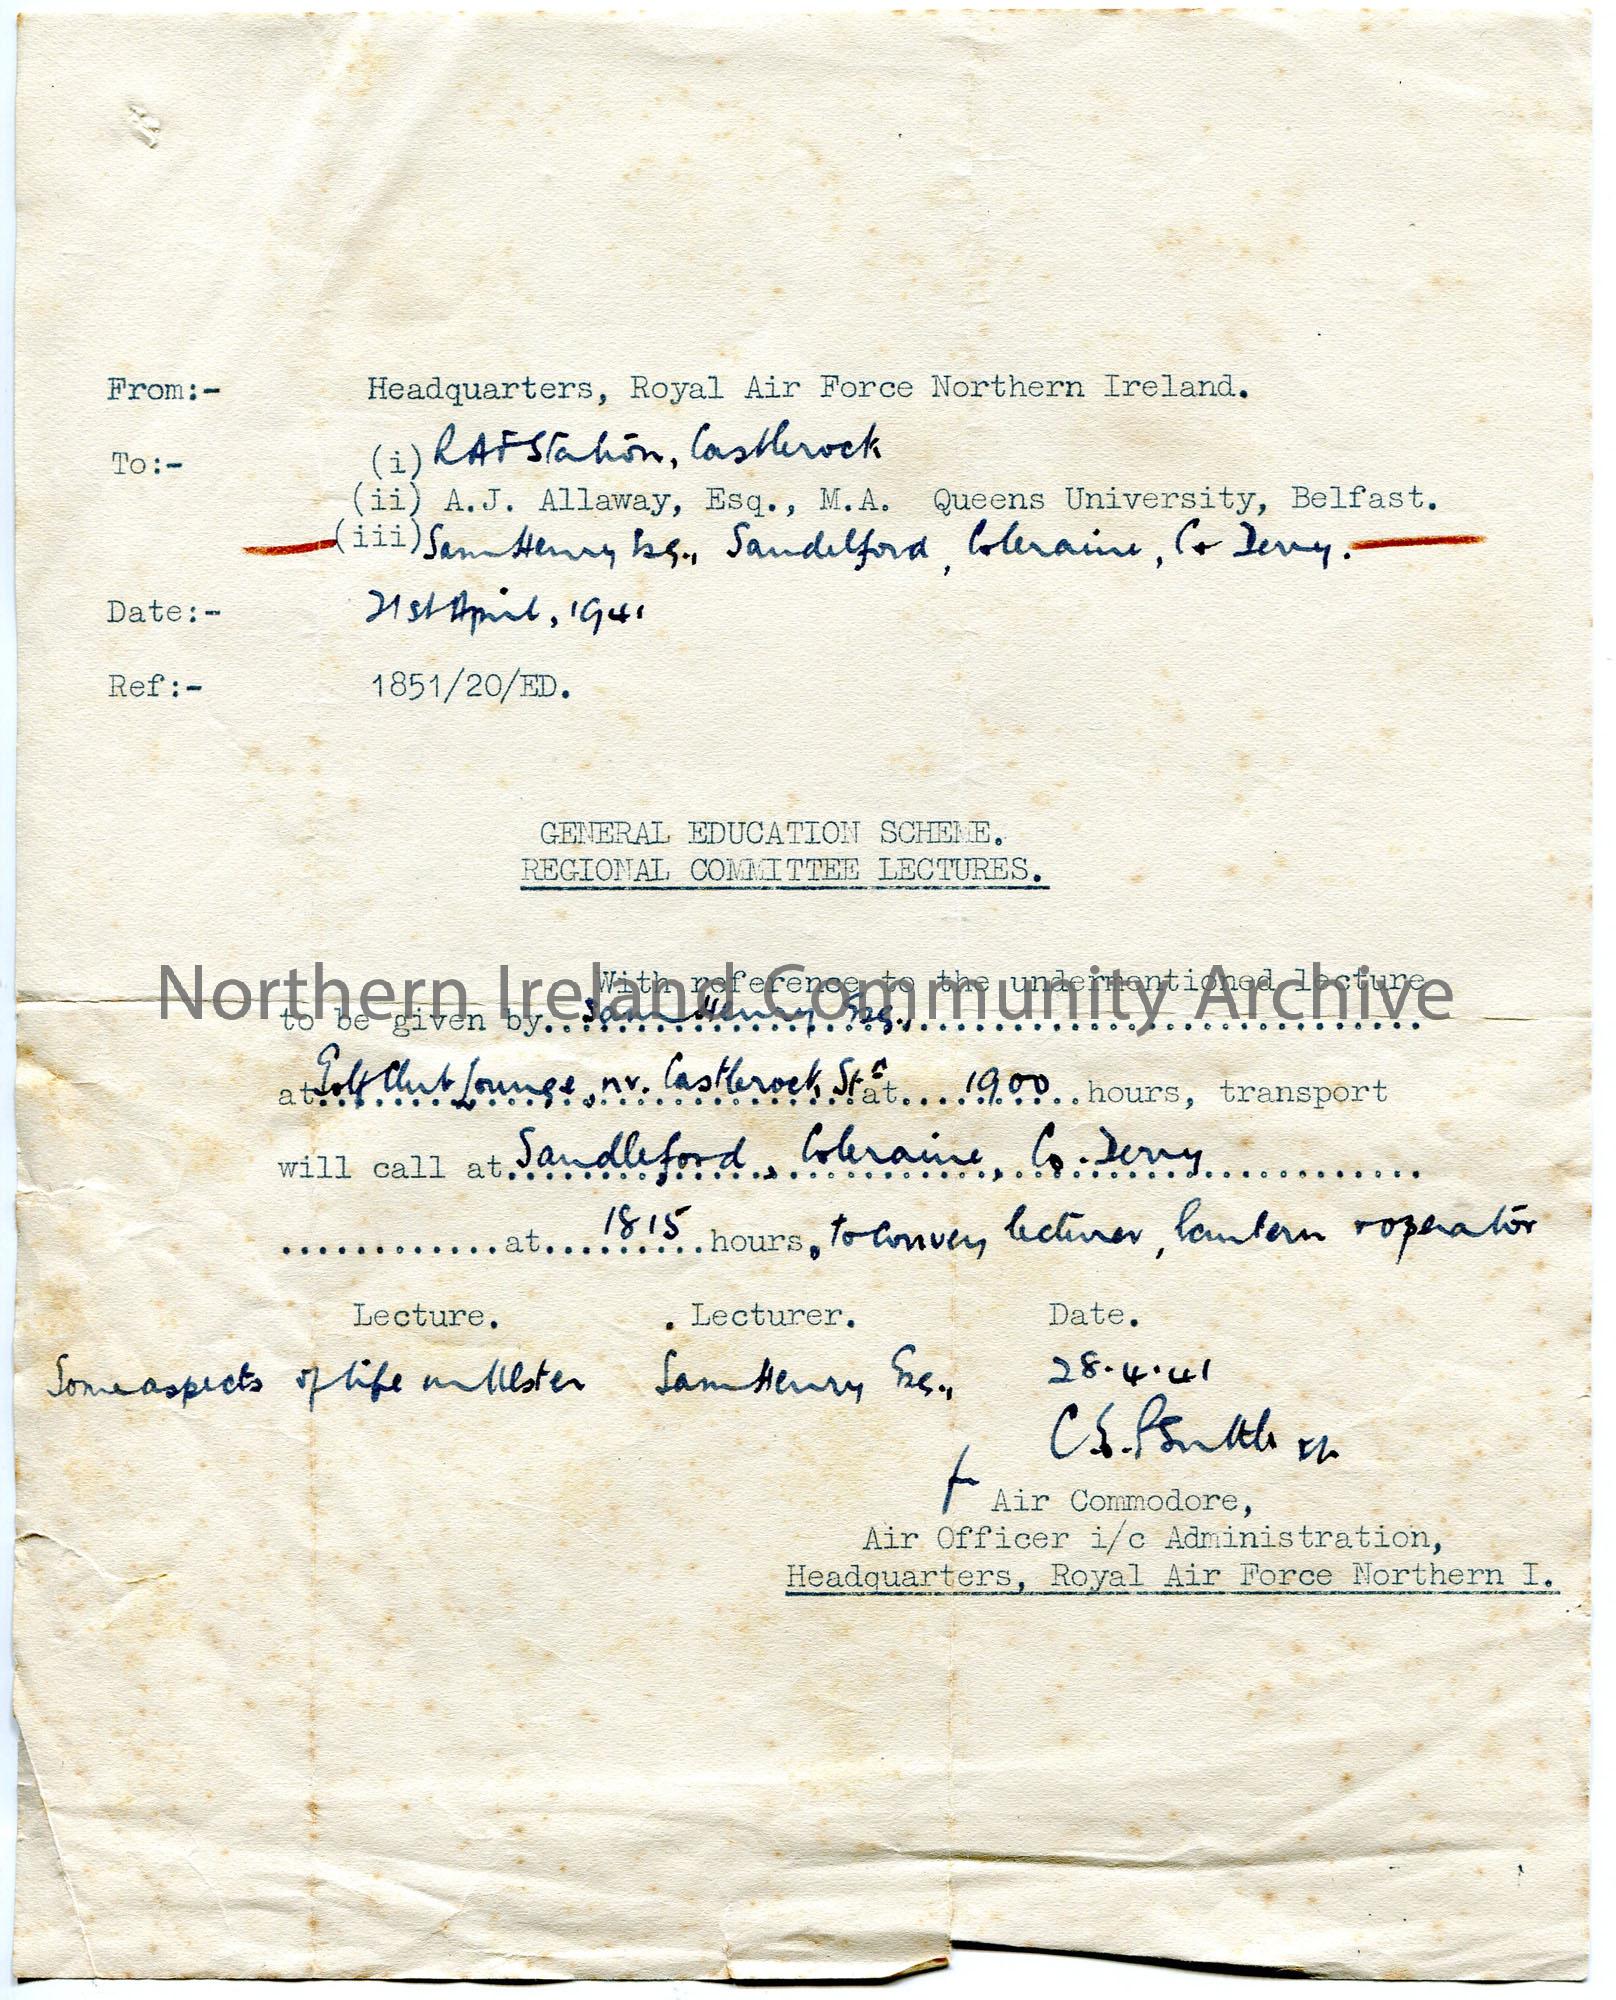 From:- Headquarters, Royal Air Force Northern Ireland.
To:- (i) RAF Station, Castlerock
(ii) A.J. Allaway, Esq., M.A. Queens University, Belfast.
(iii) Sam Henry Esq., Sandelford, Coleraine, Co Derry.
Date:- 21st April, 1941
Ref:- 1851/20/ED.
GENERAL EDUCATION SCHEME.
REGIONAL COMMITTEE LECTURES.
With reference to the undermentioned lecture
Northern Ireland Community Archive
to be given by Sam Henry Esq.,
at Golf Club Lounge, nr. Castlerock Stn at 1900 hours, transport
will call at Sandleford, Coleraine, Co. Derry
at 1815 hours, to convey lecturer, lantern + operator
Lecture. . Lecturer. Date.
Some aspects of life in Ulster Sam Henry Esq., 28.4.41
Air Commodore,
Air Officer i/c Administration,
Headquarters, Royal Air Force Northern I.